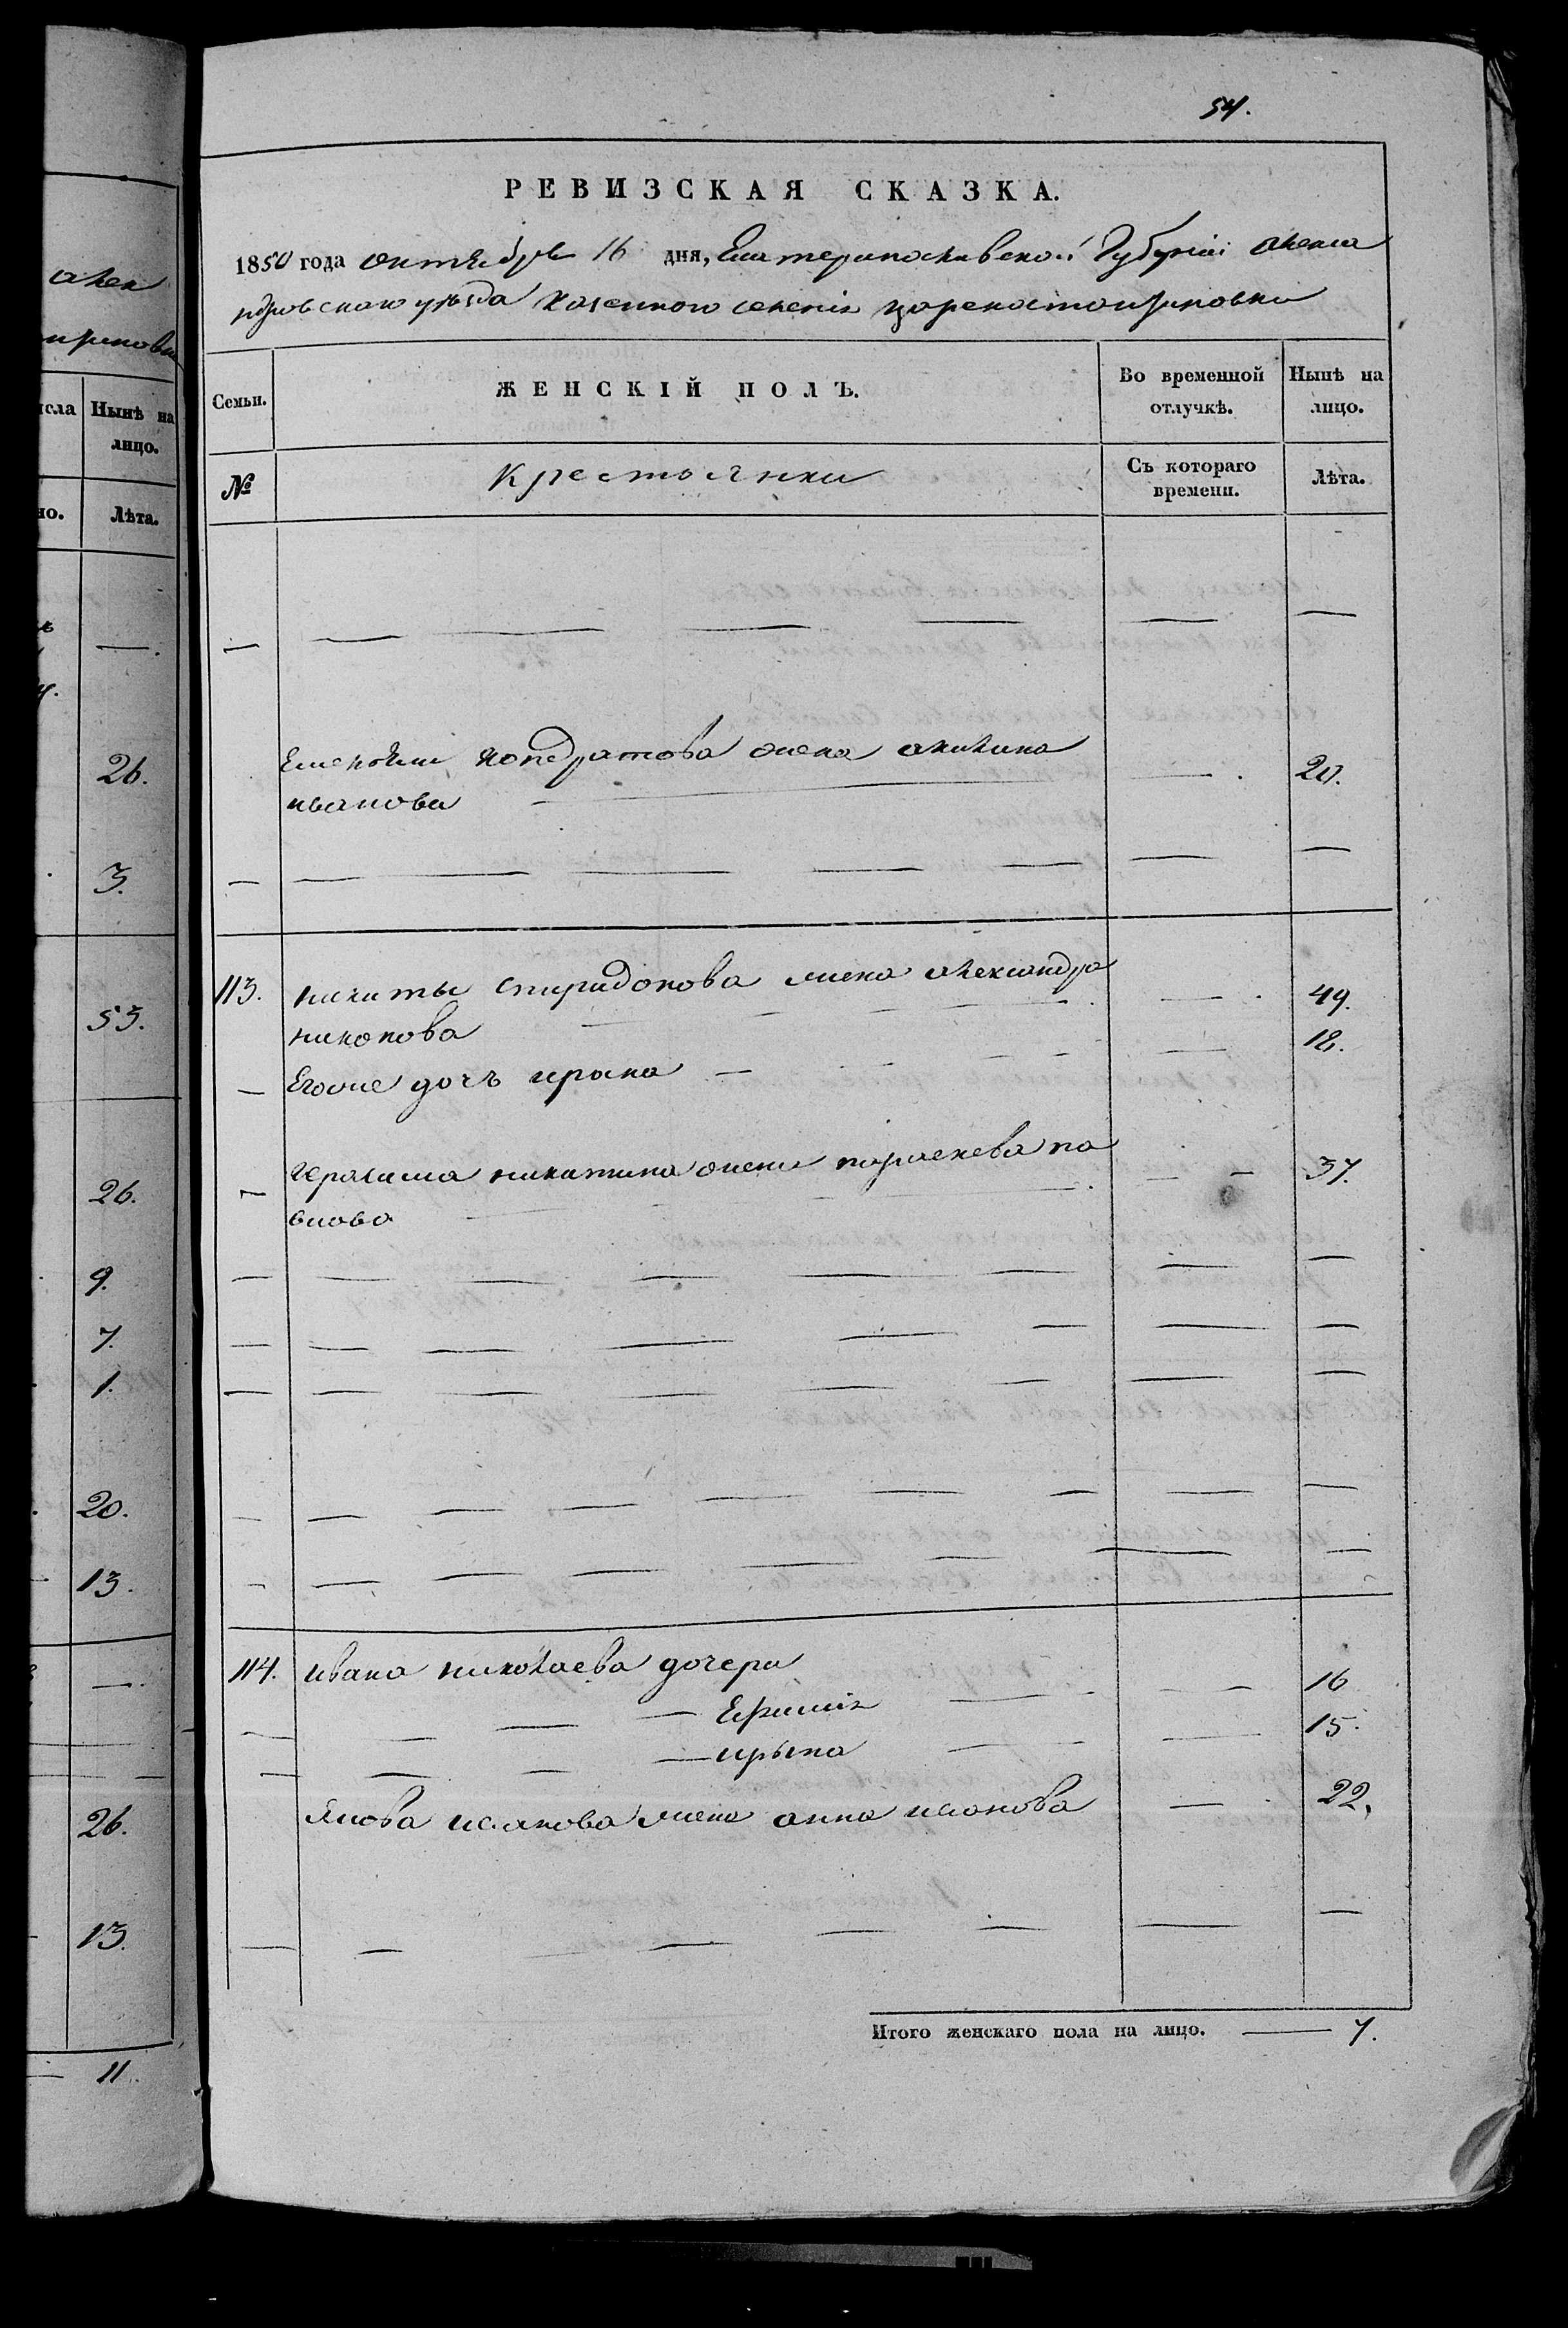 алек
ириновки
исла Нынѣ на лицо.
но. Лѣта.
—.
26.
3.
53.
26.
9.
7.
1.
20.
13.
—.
26.
13.
11.
54.
РЕВИЗСКАЯ СКАЗКА.
1850 года октября 16 дня, Екатеринославской Губерніи Алекса
ндровскаго уѣзда Казенного селенія
Семьи. ЖЕНСКІЙ ПОЛЪ. Во временной отлучкѣ. Нынѣ на лицо.
№ Крестьянки Съ котораго времени. Лѣта.
— — — — — — —
Кондратова жена акилина — . 20.
иванова —
— — — — — — — —
113. никиты Спиридонова жена александра — . 49.
никонова —
— Егоже дочь ирина — — 18.
— герасима никитина жена параскева па — 37.
влова
— — — — — — — —
— — — — — — —
— — — — — — — —
— — — — — — — —
— — — — — — — —
114. ивана николаева дочери
— — — Ефимія — — 16
— — — ирина — — 15.
Якова иванова жена анна иванова — . 22.
— — — — — — — —
Итого женскаго пола на лицо. — 7.